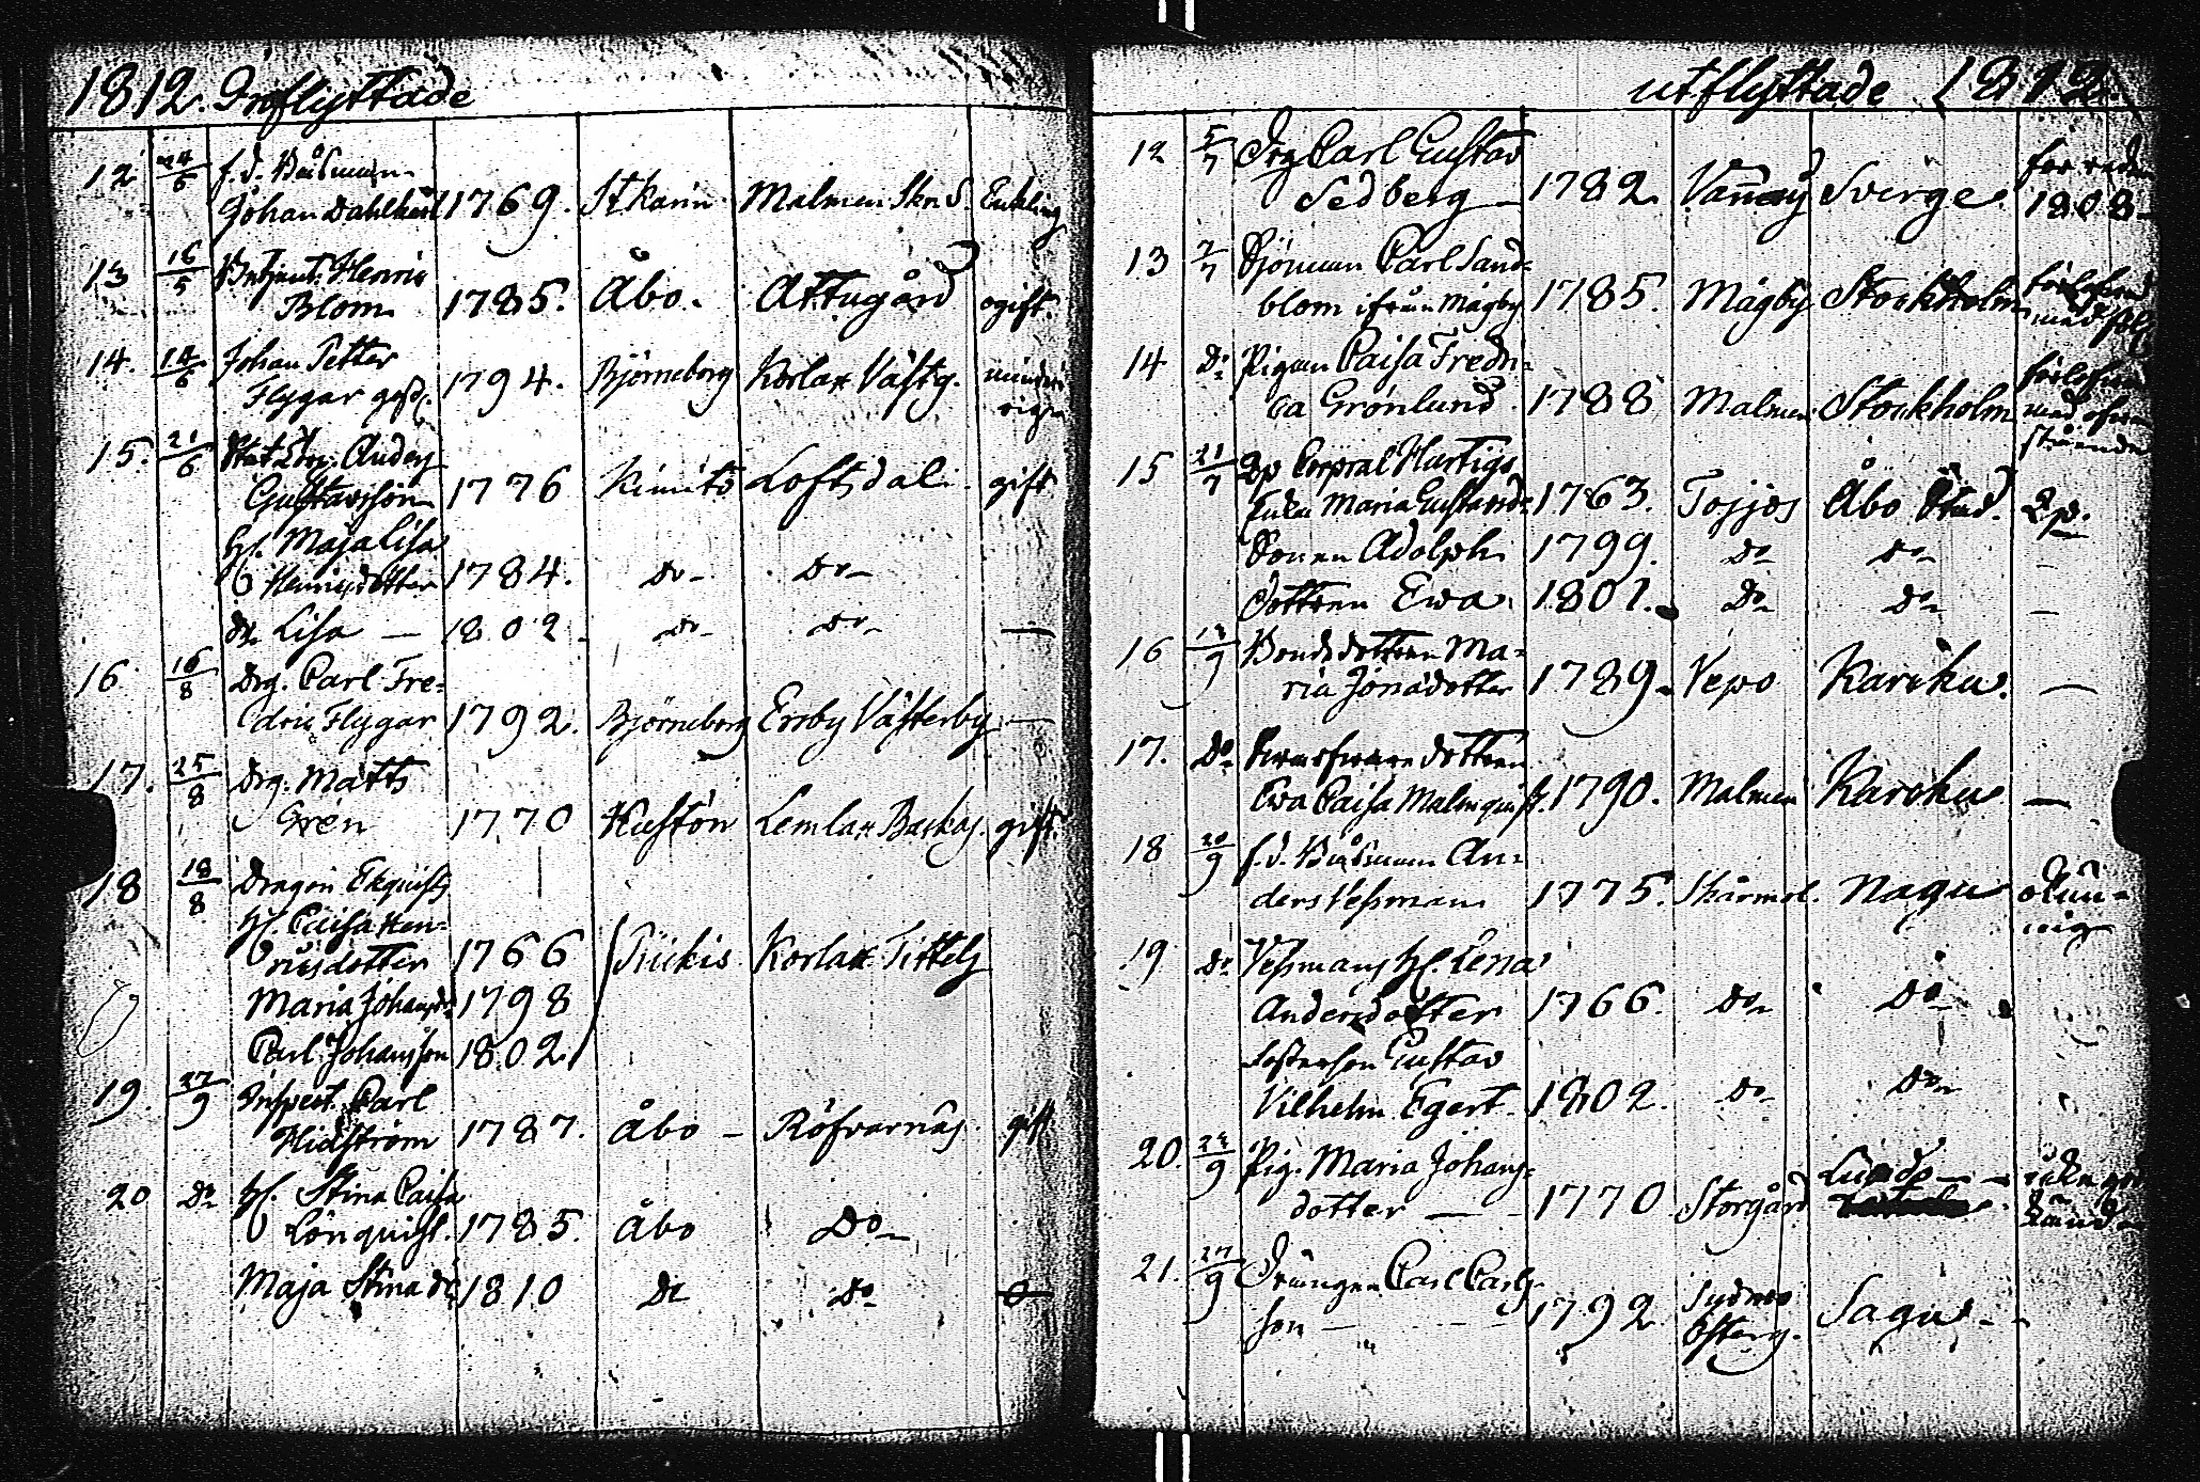 1812. Inflyttade
12 24/6 f. d. Båtsman
Johan Dahlberg 1769. St Karin Malmen Skn S. Enkling
13 16/5 Betjent. Henric
Blom 1785. Åbo. Attugård ogift.
14. 14/6 Johan Petter
Flygar 1794. Björneborg Korlax Västg. minderårig
15. 21/6 Anders
Gustavsson 1776 Kimito Loftsdal. gift
H. Maja Lisa
Henricsdotter 1784. Do Do
dr Lisa — 1802 Do Do —
16 16/8 Drg. Carl Fre-
dric Flygar 1792. Björneborg Ersby Västerby —
17. 25/8 Drg. Matts
Gren 1770 Kustön Lemlax Backas. gift.
18 18/8 Dragon Ekquists
H. Caisa Hen-
ricsdotter 1766 Piickis Korlax Tittels
Maria Johansdr 1798
Carl Johansson 1802.
19. 27/9 Inspect. Carl
Hidström 1787. Åbo — Röfvarnäs. gift
20 Do H. Stina Caisa
Lönquist. 1785. Åbo Do
Maja Stina dr 1810 Do Do
utflyttade 1812
12 5/7 Drg Carl Gustav
Sedberg 1782. Sverige 1808
13 7/7 Sjöman Carl Sand-
blom ifrån Mågby 1785. Mågby Stockholm
14 Do Pigan Caisa Fredri-
ca Grönlund 1788 Malmen Stockholm
15 21/7 Corpral Hartigs
Enka Maria Gustavsd: 1763. Tojjos Åbo Stad.
Sonen Adolph 1799. Do Do —
Dottren Ewa 1801. Do Do —
16 Bondedottren Ma-
ria Jönsdotter 1789. Vepo Kariku. —
17. Do dottren
Ewa Caisa Malmquist. 1790. Malmen Karoku —
18 20/9 f. d. Båtsman An-
ders Vessman 1775. Skärmol. Nagu
19 Do Vessmans H. Lena
Andersdotter 1766. Do Do
Fosterson Gustav
Vilhelm Egert. 1802. Do Do
20. Pig. Maria Johans-
dotter — 1770 Storgård Lundo
21. 27/9 Drängen Carl Carls-
son 1792 Sydmo
Österg. Sagu